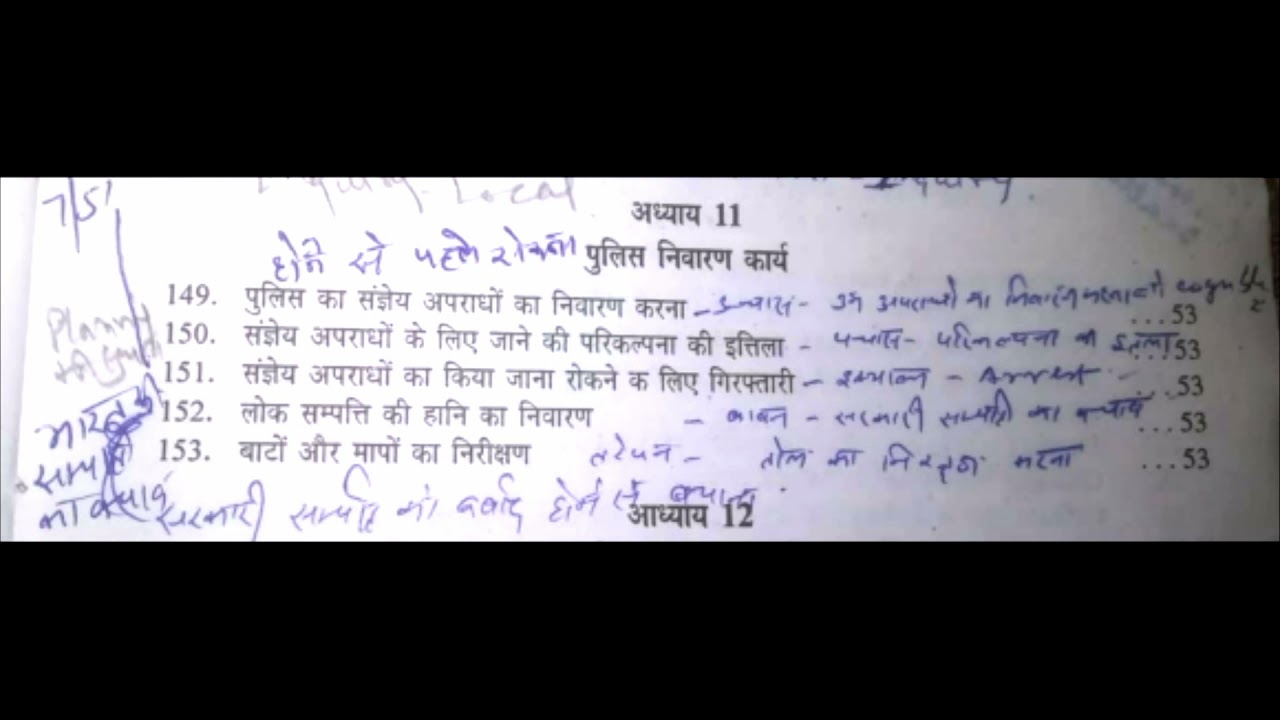 7/5
Local
अध्याय 11
होने से पहले रोकना पुलिस निवारण कार्य
149. पुलिस का संज्ञेय अपराधों का निवारण करना - उन्चास - ...53
150. संज्ञेय अपराधों के लिए जाने की परिकल्पना की इत्तिला - पचास - परिकल्पना की इतला ...53
151. संज्ञेय अपराधों का किया जाना रोकने क लिए गिरफ्तारी - इक्यावन - Arrest - ...53
152. लोक सम्पत्ति की हानि का निवारण - बावन - सरकारी सम्पत्ति का बचाव ...53
153. बाटों और मापों का निरीक्षण तरेपन - तोल का करना ...53
सरकारी सम्पत्ति को बर्बाद होने से बचाना
आध्याय 12